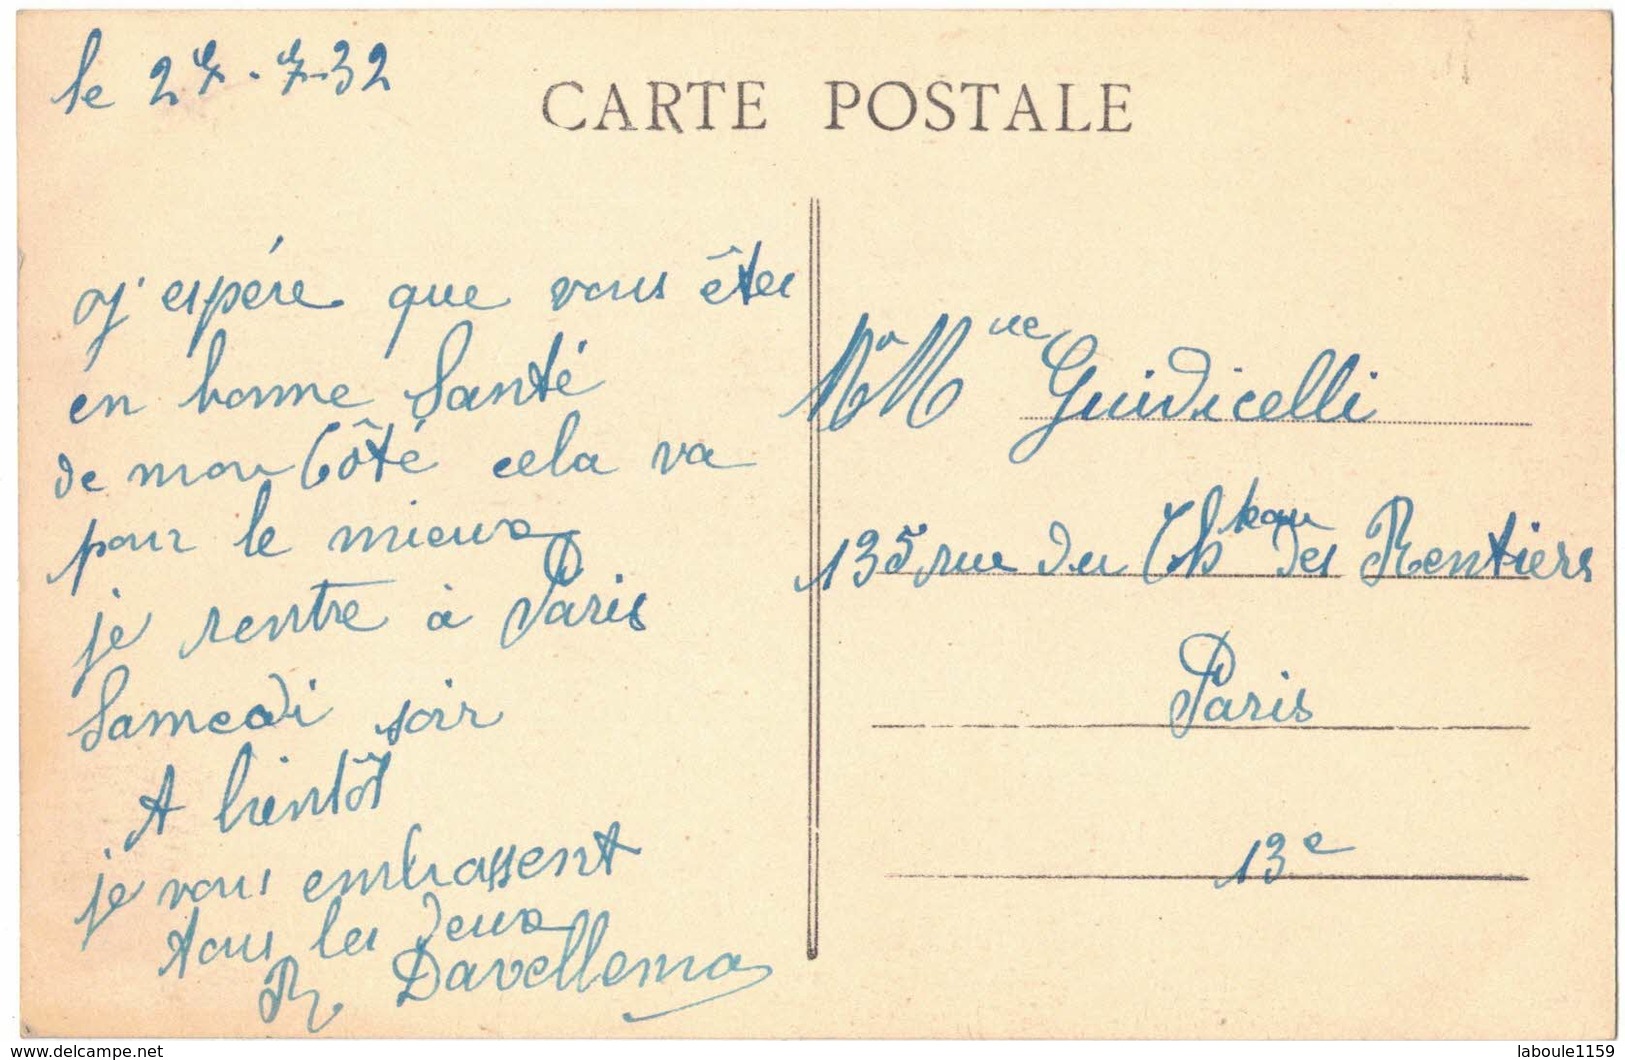 le 27-7-32
CARTE POSTALE
J'espére que vous êtes
en bonne Santé
de mon Côté cela va
pour le mieux
je rentre à Paris
Samedi soir
A bientôt
je vous embrassent
tous les deux
R. Davellema
Mr Mme Guidicelli
135 rue du Chteau des Rentiers
Paris
13e
www.delcampe.net
laboule1159